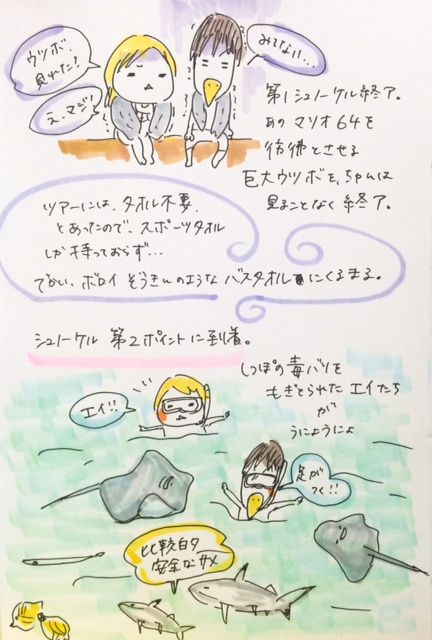 ウツボ、
見れた!?
え、マジ!
みてない…
第1シュノーケル終了。
あの マリオ64を
彷彿とさせる
巨大ウツボを、ちゃんは
見ることなく終了。
ツアーには、タオル不要、
とあったので、スポーツタオル
しか持っておらず…
でかい、ボロイ ぞうきんのような バスタオルにくるまる。
シュノーケル 第2ポイントに到着。
しっぽの毒バリを
もぎとられた エイたち
が
うにょうにょ
エイ!!
足が
つく!!
比較的
安全なサメ